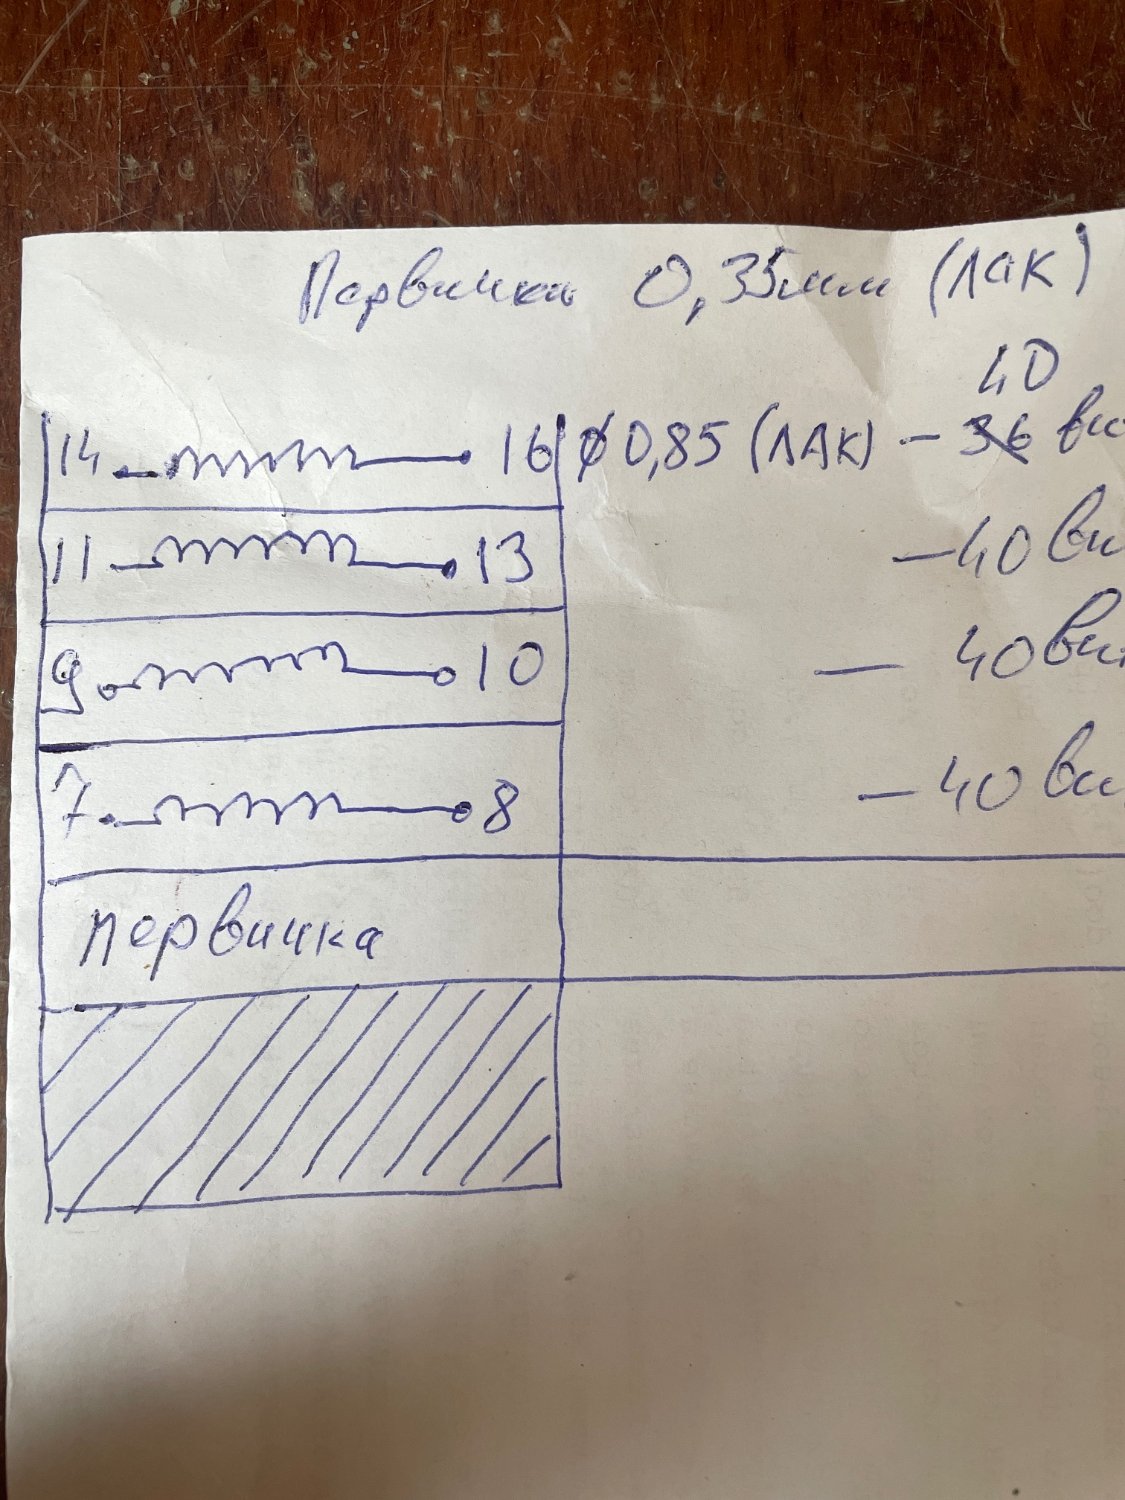 Первичка 0,35мм (ЛАК)
40
14 16 Ø0,85 (ЛАК) - 36 ви
11 13 - 40 ви
9 10 - 40 ви
7 8 - 40 ви
первичка